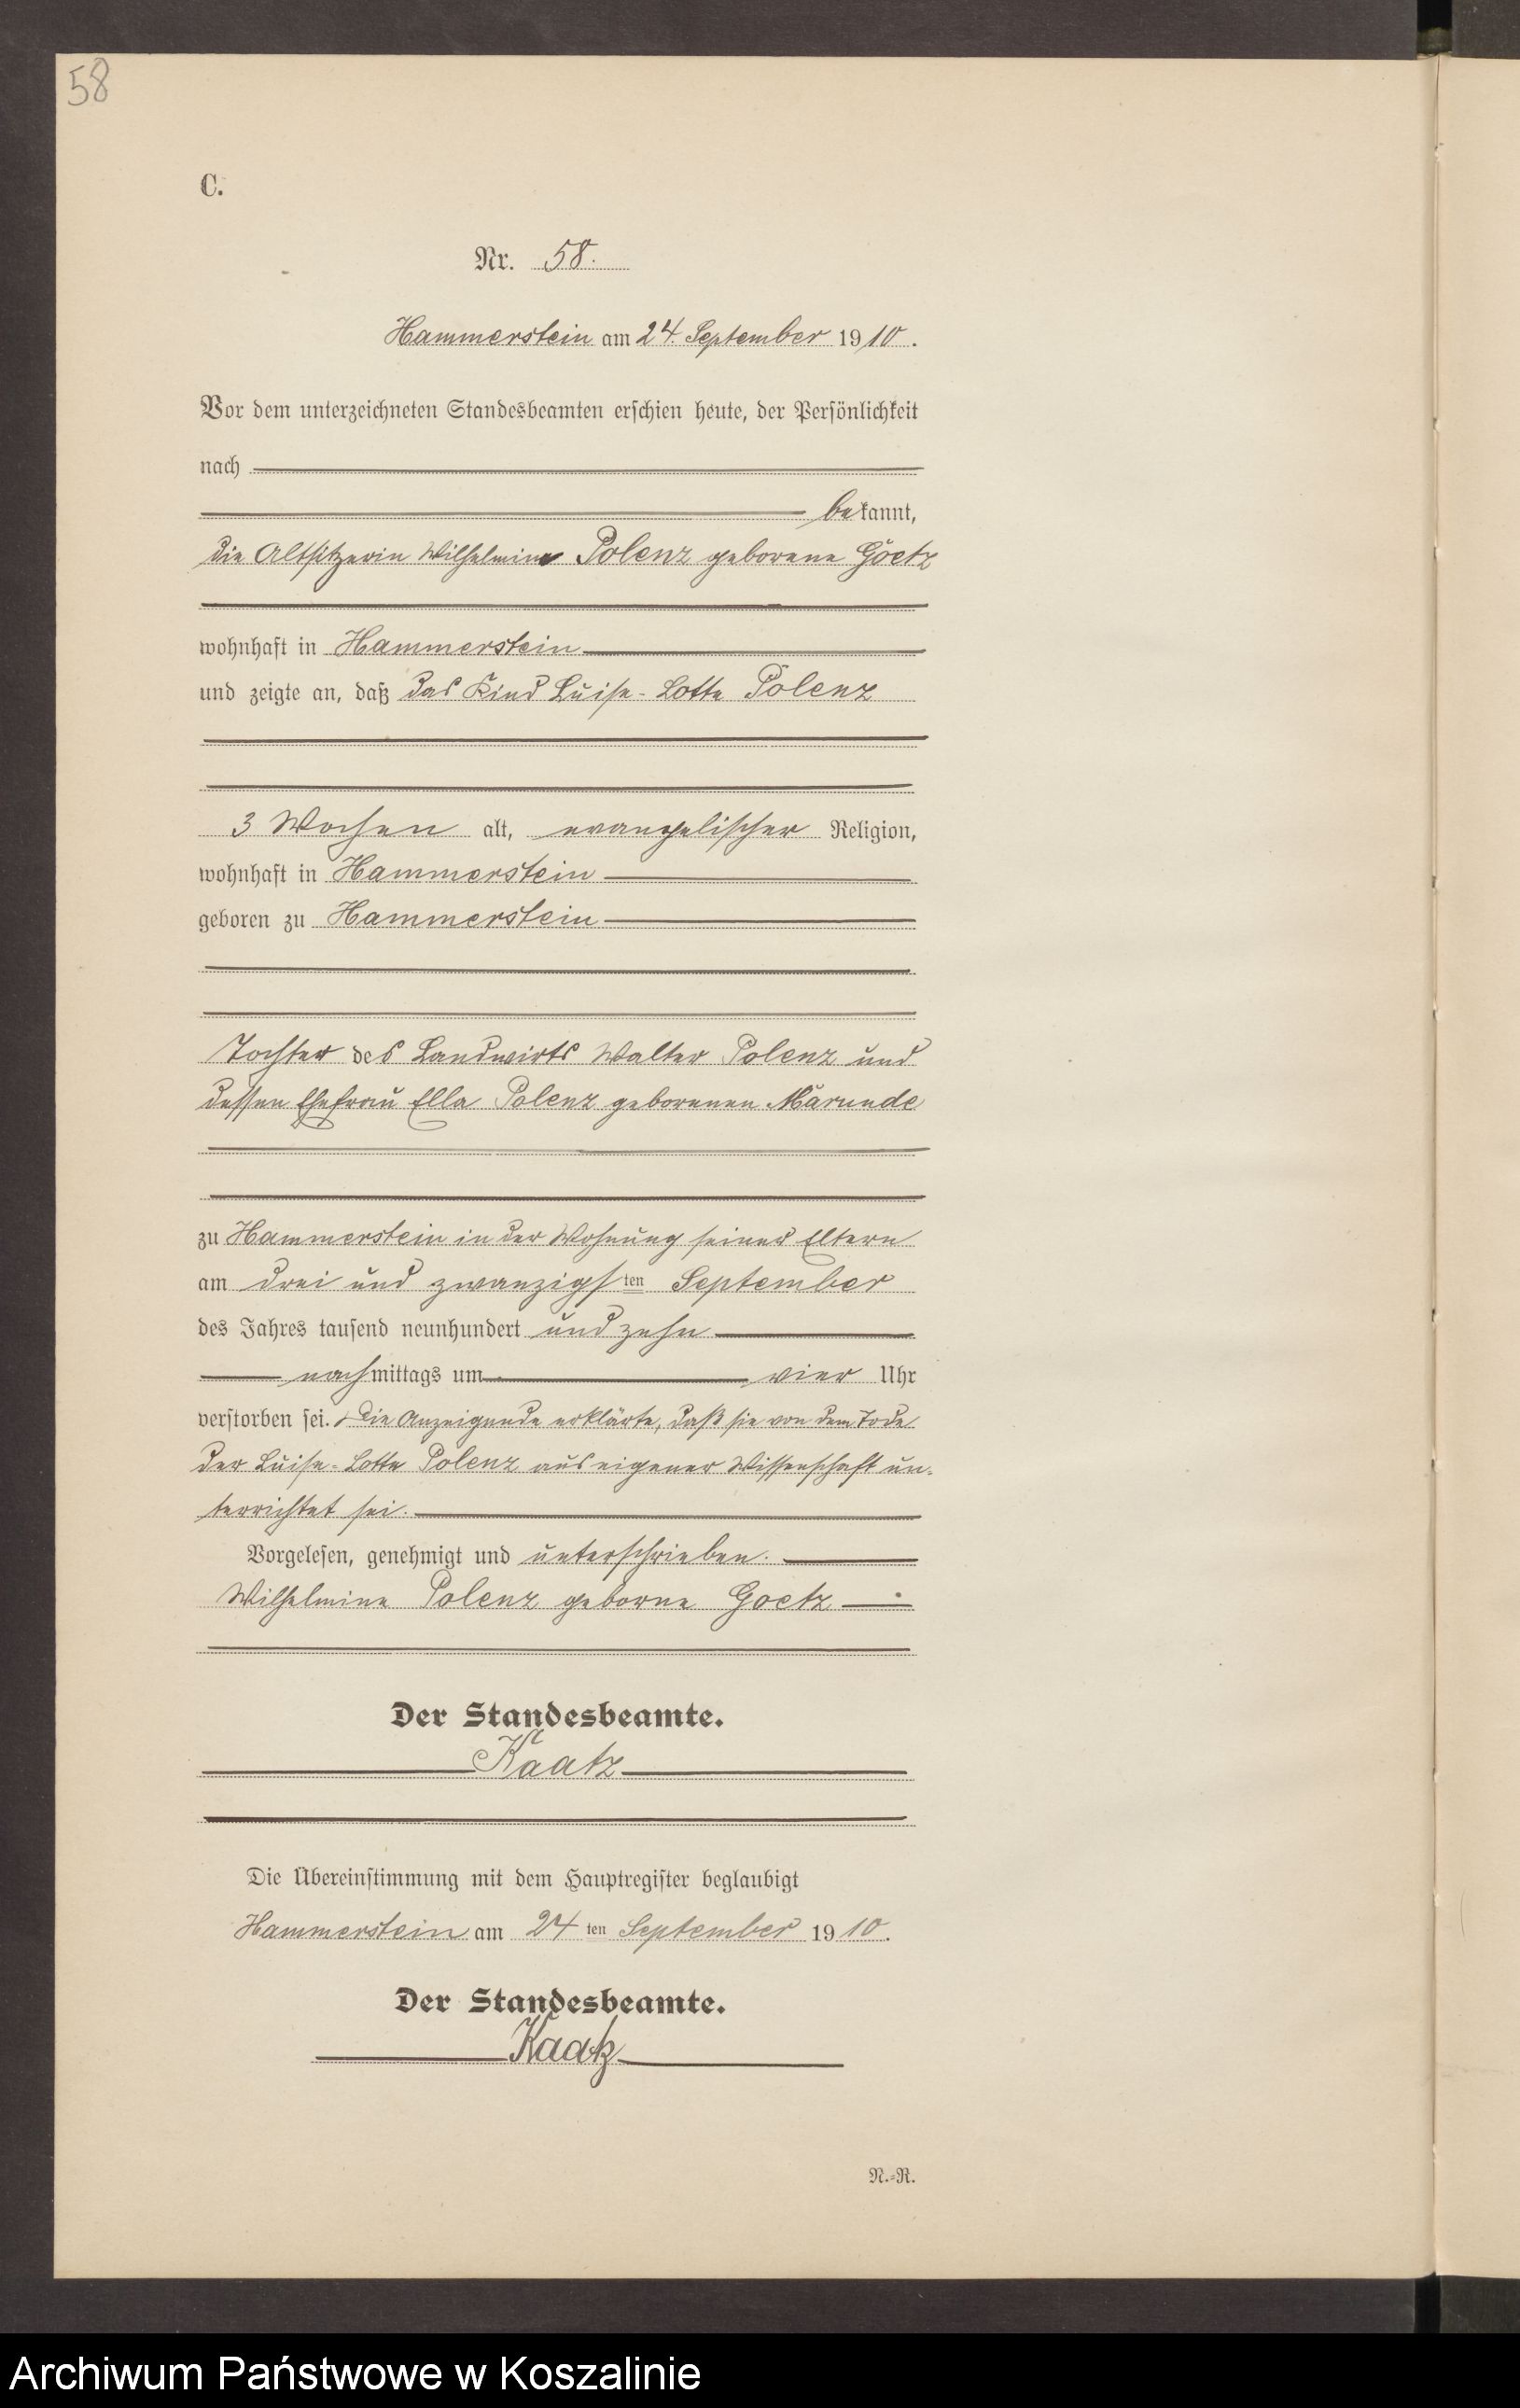 58
C.
Nr. 58.
Hammerstein am 24. September 1910.
Vor dem unterzeichneten Standesbeamten erschien heute, der Persönlichkeit
nach
bekannt,
die Altsitzerin Wilhelmine Polenz geborene Goetz
wohnhaft in Hammerstein
und zeigte an, daß das Kind Luise-Lotte Polenz
3 Wochen alt, evangelischer Religion,
wohnhaft in Hammerstein
geboren zu Hammerstein
Tochter des Landwirts Walter Polenz und
dessen Ehefrau Ella Polenz geborenen Marunde
zu Hammerstein in der Wohnung seiner Eltern
am drei und zwanzigsten September
des Jahres tausend neunhundert und zehn
nachmittags um vier Uhr
verstorben sei. Die Anzeigende erklärte, daß sie von dem Tode
der Luise-Lotte Polenz aus eigener Wissenschaft un-
terrichtet sei.
Vorgelesen, genehmigt und unterschrieben.
Wilhelmine Polenz geborne Goetz
Der Standesbeamte.
Kaatz
Die Übereinstimmung mit dem Hauptregister beglaubigt
Hammerstein am 24ten September 1910.
Der Standesbeamte.
Kaatz
N.-R.
Archiwum Państwowe w Koszalinie